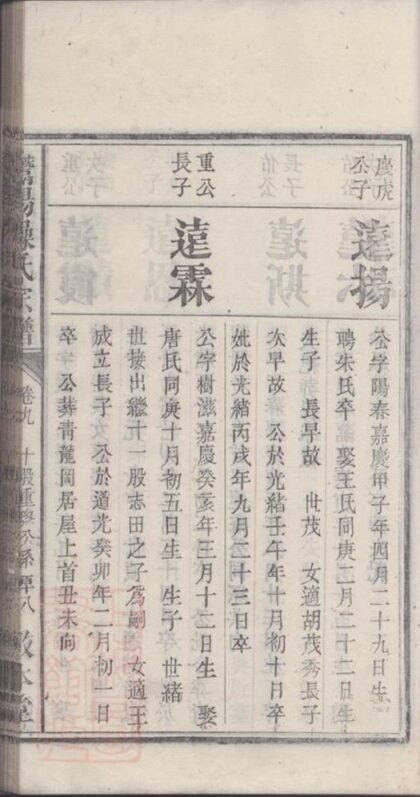 慶虎公子
遠揚
公字陽春嘉慶甲子年四月二十九日生
聘朱氏卒 娶王氏同庚二月二十二日生
生子 長早故 世茂 女適胡茂秀長子
次早故 公於光緒壬午年十月初十日卒
妣於光緒丙戌年九月二十三日卒
重公長子
遠霖
公字樹滋嘉慶癸亥年三月十二日生 娶
唐氏同庚十月初五日生 生子 世緒
世接出繼十一股志田之子為嗣 女適王
成立長子 公於道光癸卯年二月初一日
卒 公葬青龍岡居屋上首丑未向
氏宗譜
卷九